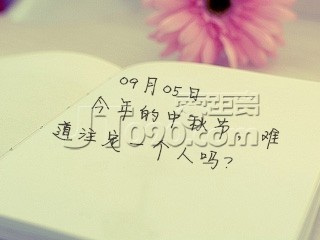 09月05日
今年的中秋节,难
道注定一个人吗?